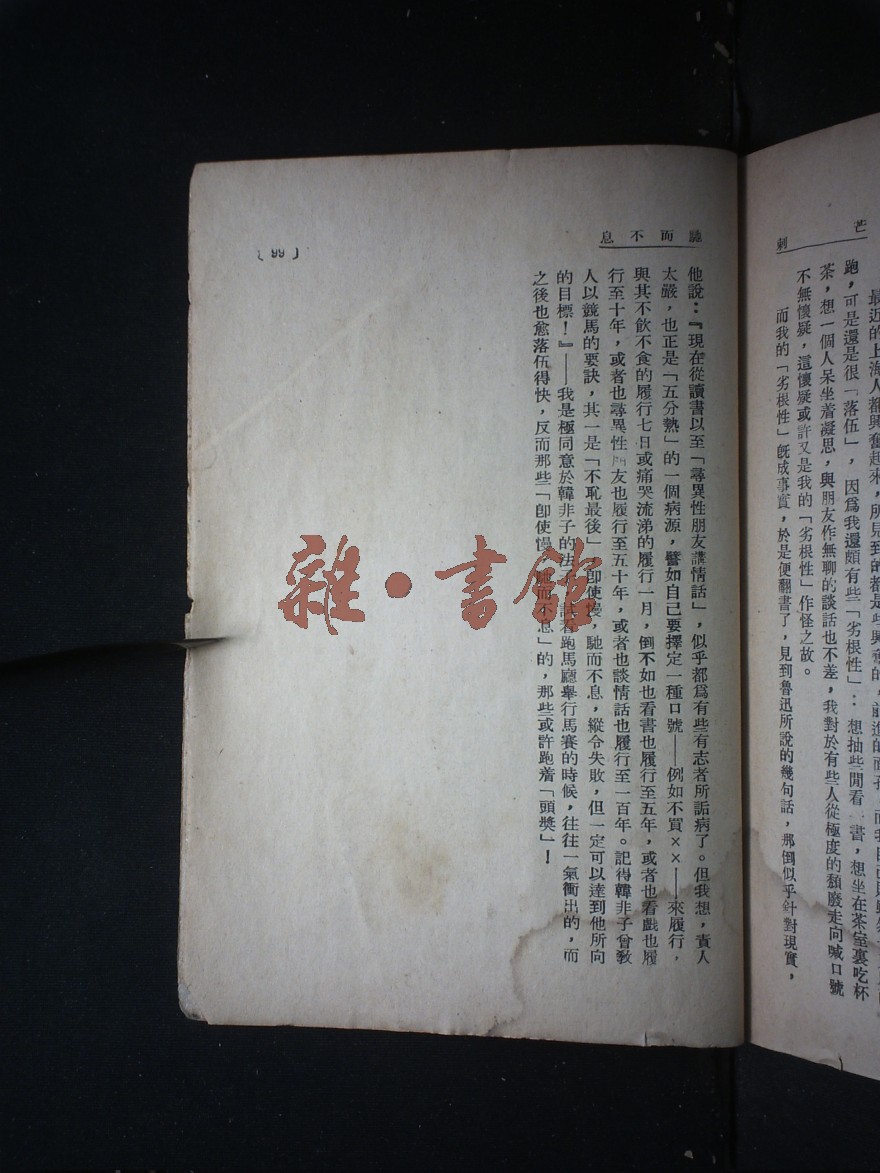 芒
刺
最近的上海人都興奮起來，所見到的都是些興奮的，前進的面孔
跑，可是還是很「落伍」，因爲我還頗有些「劣根性」：想抽些閒看 書，想坐在茶室裏吃杯
茶，想一個人呆坐着凝思，與朋友作無聊的談話也不差，我對於有些人從極度的頹廢走向喊口號
不無懷疑，這懷疑或許又是我的「劣根性」作怪之故。
而我的「劣根性」旣成事實，於是便翻書了，見到魯迅所說的幾句話，那倒似乎針對現實，
馳而不息
他說：『現在從讀書以至「尋異性朋友講情話」，似乎都爲有些有志者所詬病了。但我想，責人
太嚴，也正是「五分熱」的一個病源，譬如自己要擇定一種口號——例如不買××——來履行，
與其不飲不食的履行七日或痛哭流涕的履行一月，倒不如也看書也履行至五年，或者也看戲也履
行至十年，或者也尋異性朋友也履行至五十年，或者也談情話也履行至一百年。記得韓非子曾敎
人以競馬的要訣，其一是「不恥最後」。卽使慢，馳而不息，縱令失敗，但一定可以達到他所向
的目標！』——我是極同意於韓非子的法子，試看跑馬廳舉行馬賽的時候，往往一氣衝出的，而
之後也愈落伍得快，反而那些「卽使慢，馳而不息」的，那些或許跑着「頭獎」！
( 99 )
雜·書館